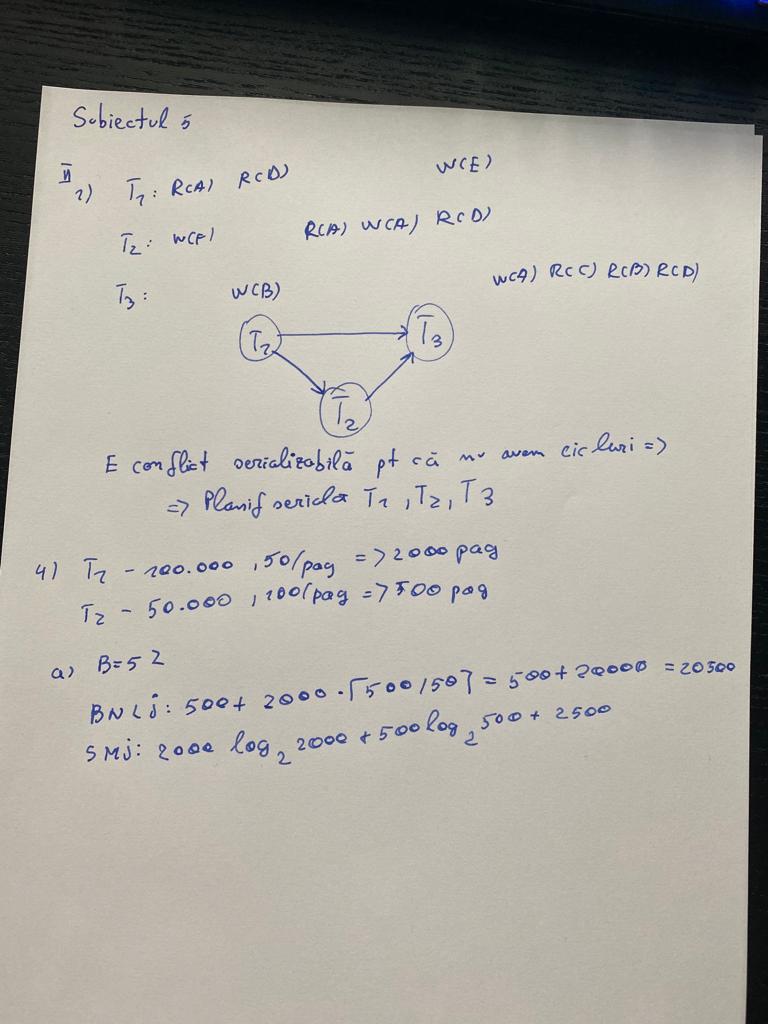 Subiectul 5
II
1) T1: R(A) R(D) W(E)
T2: W(F) R(A) W(A) R(D)
T3: W(B) W(A) R(C) R(B) R(D)
T1 T3
T2
E conflict serializabilă pt că nu avem cicluri =>
=> Planif seriala T1, T2, T3
4) T1 - 100.000, 50/pag => 2000 pag
T2 - 50.000, 100/pag => 500 pag
a) B=52
BNLj: 500 + 2000 · ⌈500/50⌉ = 500 + 20000 = 20500
SMj: 2000 log₂ 2000 + 500 log₂ 500 + 2500